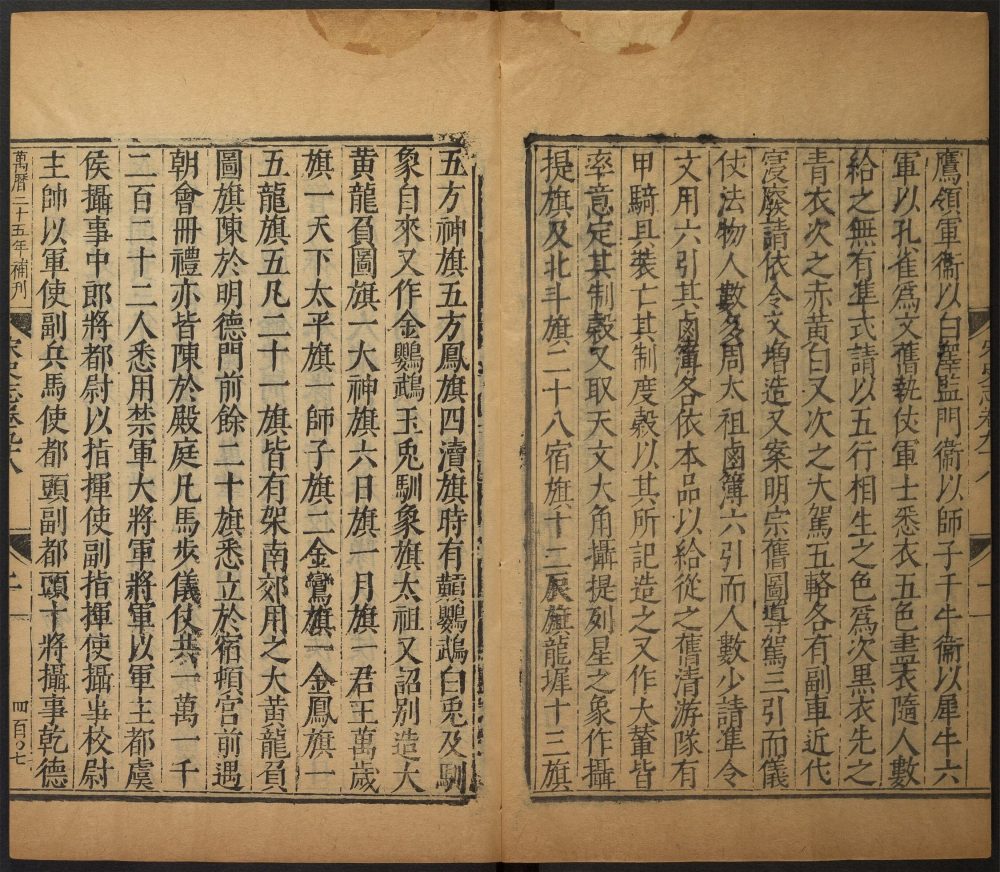 鷹領軍衞以白澤監門衞以師子千牛衞以犀牛六
軍以孔雀爲文舊執仗軍士悉衣五色畫衣隨人數
給之無有準式請以五行相生之色爲次黑衣先之
青衣次之赤黃白又次之大駕五輅各有副車近代
寖廢請依令文增造又案明宗舊圖導駕三引而儀
仗法物人數多周太祖鹵簿六引而人數少請準令
文用六引其鹵簿各依本品以給從之舊清游隊有
甲騎具裝亡其制度縠以其所記造之又作大輦皆
率意定其制縠又取天文大角攝提列星之象作攝
提旗及北斗旗二十八宿旗十二辰旗龍墀十三旗
五方神旗五方鳳旗四瀆旗時有貢鸚鵡白兎及馴
象自來又作金鸚鵡玉兎馴象旗太祖又詔別造大
黄龍負圖旗一大神旗六日旗一月旗一君王萬歲
旗一天下太平旗一師子旗二金鸞旗一金鳳旗一
五龍旗五凡二十一旗皆有架南郊用之大黄龍負
圖旗陳於明德門前餘二十旗悉立於宿頓宮前遇
朝會冊禮亦皆陳於殿庭凡馬步儀仗共一萬一千
二百二十二人悉用禁軍大將軍將軍以軍主都虞
侯攝事中郎將都尉以指揮使副指揮使攝事校尉
主帥以軍使副兵馬使都頭副都頭十將攝事乾德
萬曆二十五年補刊
四百〇七